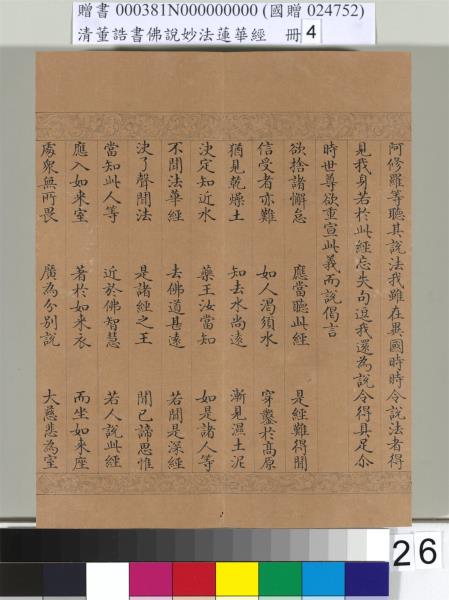 贈書 000381N000000000 (國贈 024752)
清董誥書佛說妙法蓮華經 冊 4
阿修羅等聽其說法我雖在異國時時令說法者得
見我身若於此經忘失句逗我還為說令得具足尒
時世尊欲重宣此義而說偈言
欲捨諸懈怠 應當聽此經 是經難得聞
信受者亦難 如人渴須水 穿鑿於高原
猶見乾燥土 知去水尚遠 漸見濕土泥
決定知近水 藥王汝當知 如是諸人等
不聞法華經 去佛道甚遠 若聞是深經
決了聲聞法 是諸經之王 聞已諦思惟
當知此人等 近於佛智慧 若人說此經
應入如來室 著於如來衣 而坐如來座
處眾無所畏 廣為分別說 大慈悲為室
26